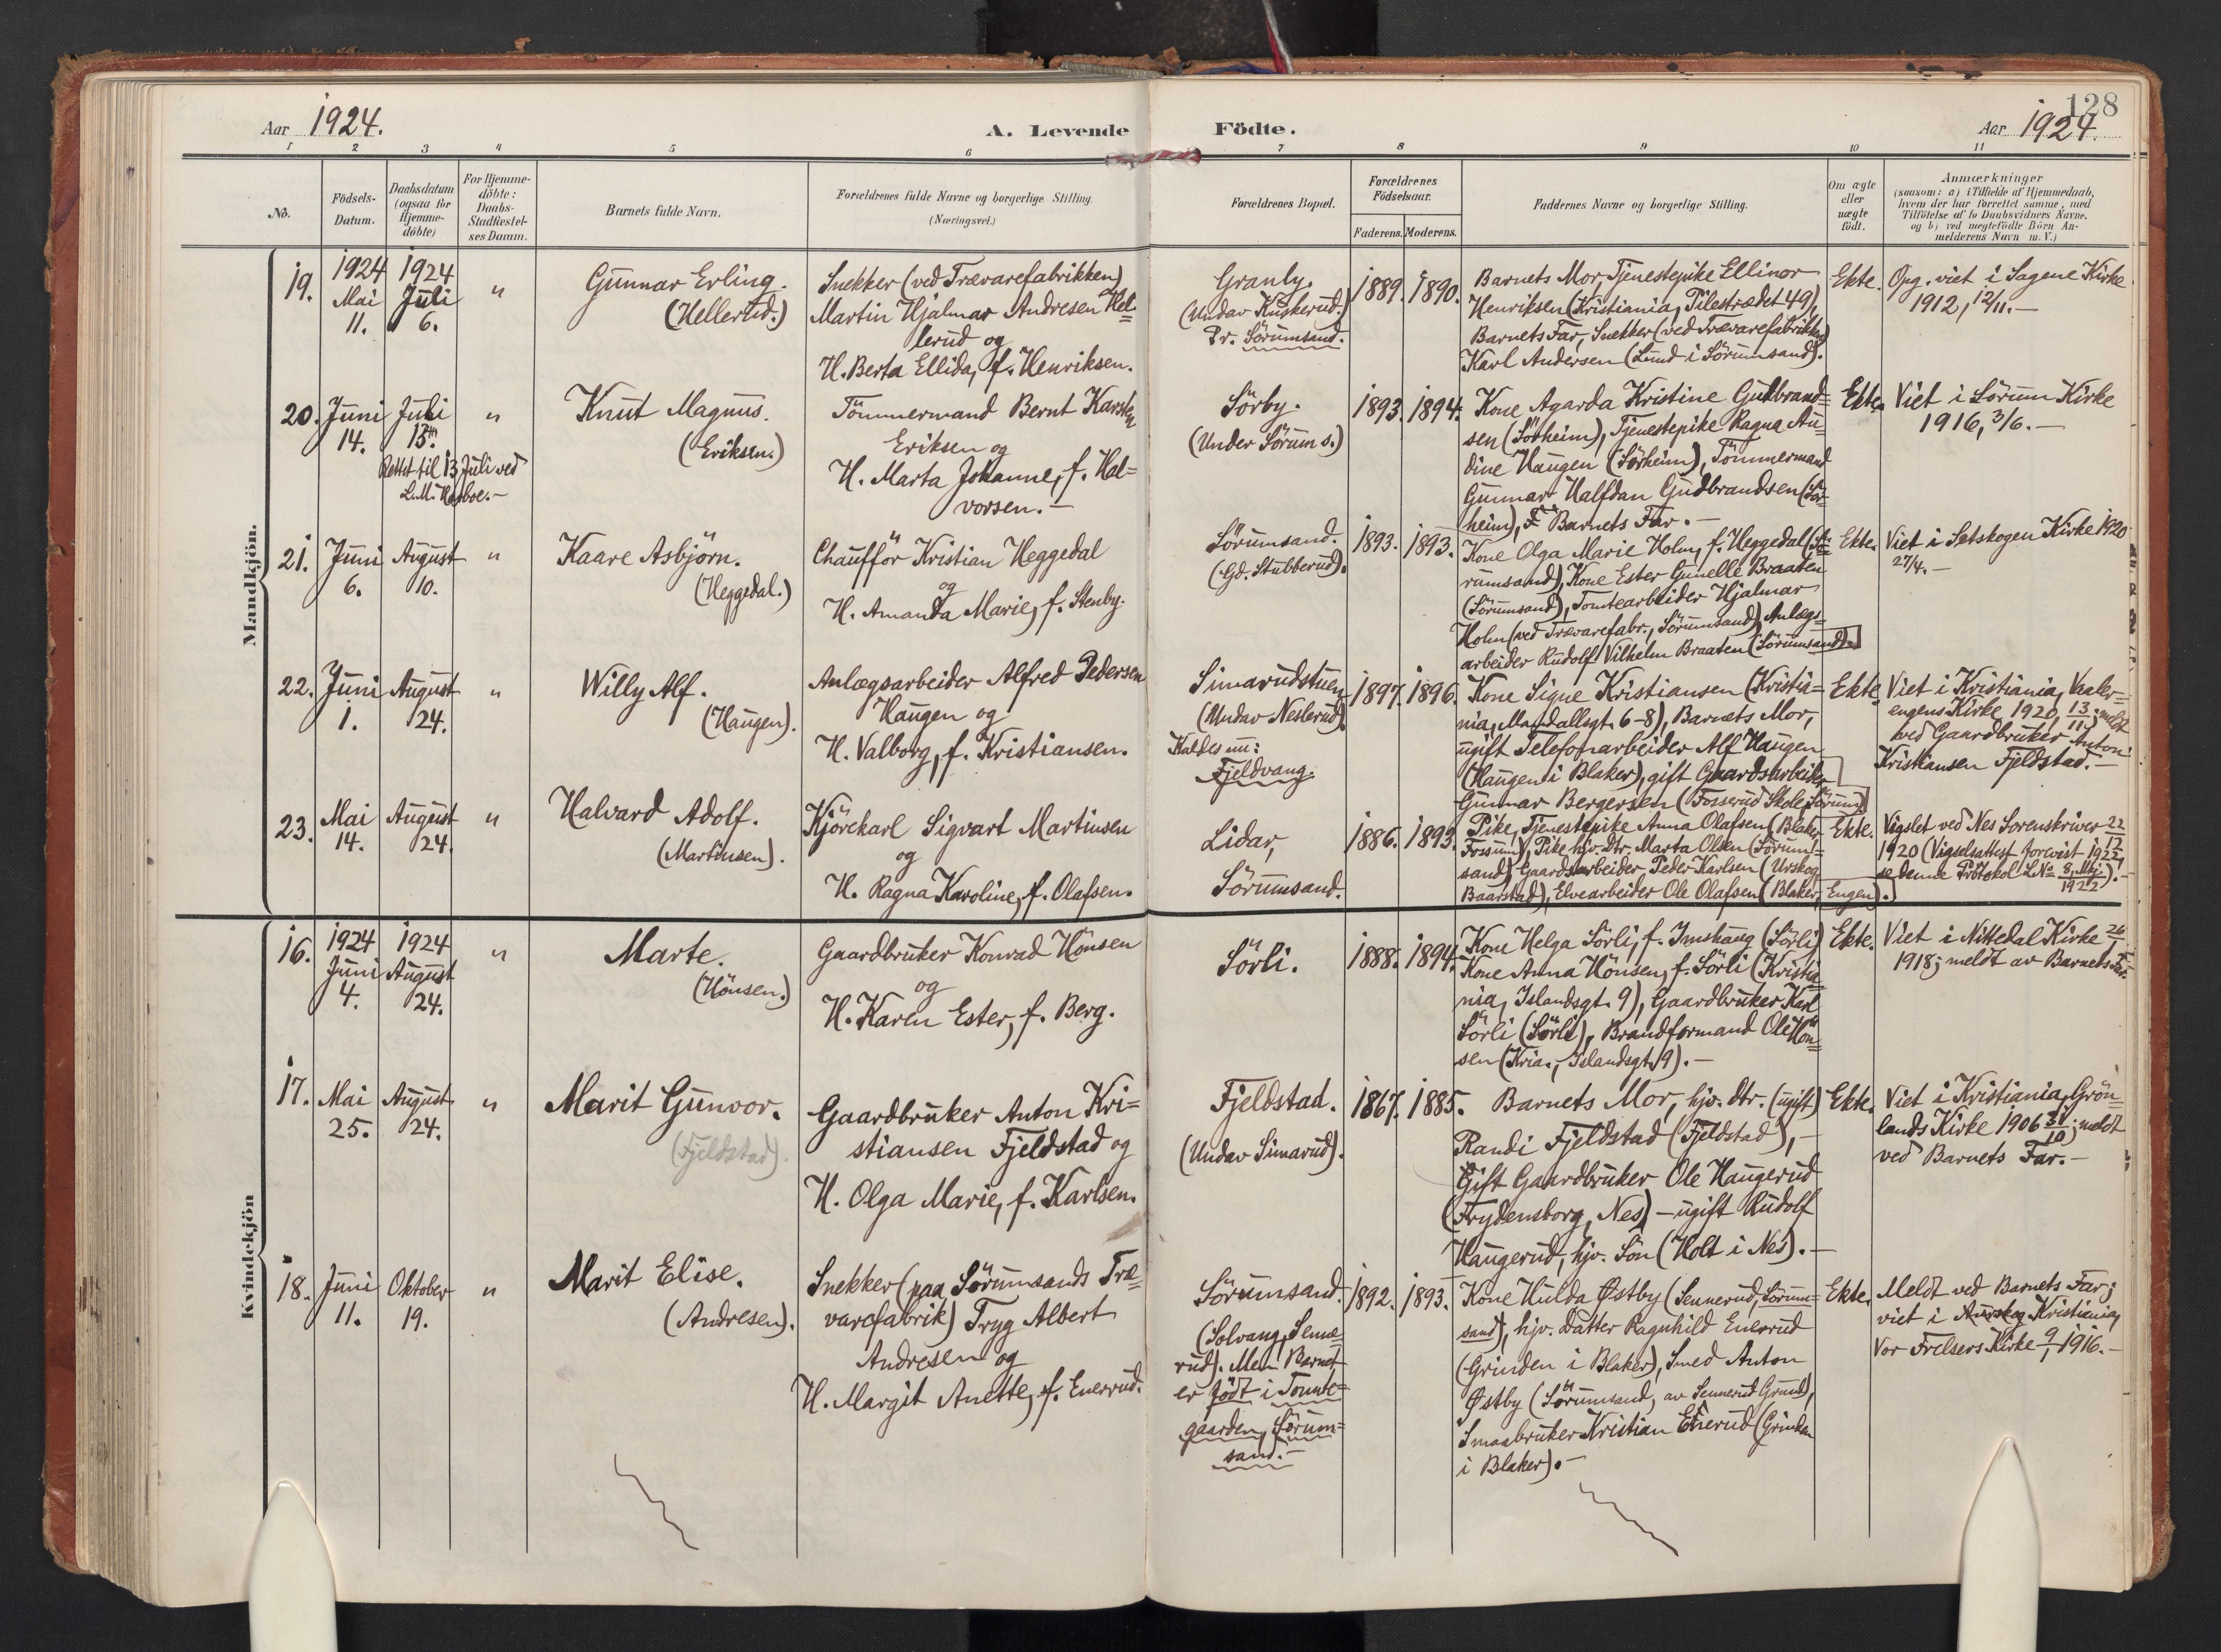 128
Aar 1924.
A. Levende Födte.
Aar 1924.
1 2 3 4 5 6 7 8 9 10 11
No.
Födsels-
Datum.
Daabsdatum
(ogsaa for
Hjemme-
döbte)
For Hjemme-
döbte:
Daabs-
Stadfæstel-
ses Datum.
Barnets fulde Navn.
Forældrenes fulde Navne og borgerlige Stilling.
(Næringsvei.)
Forældrenes Bopæl.
Forældrenes
Födselsaar.
Faderens. Moderens.
Faddernes Navne og borgerlige Stilling.
Om ægte
eller
uægte
födt.
Anmærkninger
(saasom: a) i Tilfælde af Hjemmedaab,
hvem der har forrettet samme, med
Tilföielse af to Daabsvidners Navne,
og b) ved uægtefödte Börn An-
melderens Navn m. V.)
Mandkjön.
19.
1924
Mai
11.
1924
Juli
6.
"
Gunnar Erling.
(Hellerud.)
Snekker (ved Trævarefabrikken)
Martin Hjalmar Andresen Hel=
lerud og
H. Berta Ellida, f. Henriksen.
Granly.
(Undav Kuskerud.)
Pr. Sörumsand.
1889.
1890.
Barnets Mor, Tjenestepike Ellinor
Henriksen (Kristiania, Pilestrædet 49),
Barnets Far, Snekker (ved Trævarefabrikken)
Karl Andersen (Lund i Sörumsand).
Ekte.
Opg. viet i Sagene Kirke
1912, 12/11.—
20.
Juni
14.
Juli
13.
Rettet til 13 Juli ved
L.M. Harboe.—
"
Knut Magnus.
(Eriksen.)
Tömmermand Bernt Karsten
Eriksen og
H. Marta Johanne, f. Hal=
vorsen.—
Sörby.
(Under Sörum s.)
1893.
1894.
Kone Agarda Kristine Gulbrand=
sen (Sörheim), Tjenestepike Ragna Au=
dine Haugen (Sörheim), Tömmermand
Gunnar Halfdan Gudbrandsen (Sör=
heim), Barnets Far.—
Ekte.
Viet i Sörum Kirke
1916, 3/6.—
21.
Juni
6.
August
10.
"
Kaare Asbjörn.
(Heggedal.)
Chaufför Kristian Heggedal
og
H. Amanda Marie, f. Stenby.
Sörumsand.
(Gd. Stubberud).
1893.
1893.
Kone Olga Marie Holm, f. Heggedal (Sö=
rumsand), Kone Ester Gunelle Braaten
(Sörumsand), Tomtearbeider Hjalmar
Holm (ved Trævarefabr., Sörumsand), Anlægs=
arbeider Rudolf Vilhelm Braaten (Sörumsand).
Ekte.
Viet i Setskogen Kirke 1920
27/4.—
22.
Juni
1.
August
24.
"
Willy Alf.
(Haugen).
Anlægsarbeider Alfred Pedersen
Haugen og
H. Valborg, f. Kristiansen.
Simarudstuen
(Undav Neslerud).
Kaldes nu:
Fjeldvang.
1897.
1896.
Kone Signe Kristiansen (Kristia=
nia, Mandallsgt. 6-8), Barnets Mor,
ugift Telefonarbeider Alf Haugen
(Haugen i Blaker), gift Gaardsarbeider
Gunnar Bergersen (Fosserud Skole, Sörum)
Ekte
Viet i Kristiania, Vaaler=
engens Kirke 1920, 13/11; meldt
ved Gaardbruker Anton
Kristiansen Fjeldstad.—
23.
Mai
14.
August
24.
"
Halvard Adolf.
(Martinsen).
Kjörekarl Sigvart Martinsen
og
H. Ragna Karoline, f. Olafsen.
Lidar,
Sörumsand.
1886.
1893.
Pike, Tjenestepike Anna Olafsen (Blaker,
Fossum), Pike, hjv. dtr. Marta Olsen (Sörum=
sand), Gaardsarbeider Peder Karlsen (Urskog
Baarstad), Elvearbeider Ole Olafsen (Blaker, Engen).
Ekte.
Vigslet ved Nes Sorenskriver 22/12
1920 (Vigselsattest forevist 1922,
se denne Protokol LNo 8, Mkj. 1922).—
Kvindekjön
16.
1924
Juni
4.
1924
August
24.
"
Marte.
(Hönsen.)
Gaardbruker Konrad Hönsen
og
H. Karen Ester, f. Berg.
Sörli.
1888.
1894.
Kone Helga Sörli, f. Imshaug (Sörli)
Kone Anna Hönsen, f. Sörli (Kristia=
nia, Islandsgt. 9), Gaardbruker Karl
Sörli (Sörli), Brandformand Ole Hön=
sen (Kria., Islandsgt. 9).—
Ekte.
Viet i Nittedal Kirke 26/1
1918; meldt av Barnets Far.
17.
Mai
25.
August
24.
"
Marit Gunvor.
(Fjeldstad).
Gaardbruker Anton Kri=
stiansen Fjeldstad og
H. Olga Marie, f. Karlsen.
Fjeldstad.
(Undav Simarud).
1867.
1885.
Barnets Mor, hjv. dtr. (ugift)
Randi Fjeldstad (Fjeldstad),—
Gift Gaardbruker Ole Haugerud
(Frydensborg, Nes) — ugift Rudolf
Haugerud, hjv. Sön (Holt i Nes).—
Ekte.
Viet i Kristiania, Grön=
lands Kirke 1906 31/10; meldt
ved Barnets Far.—
18.
Juni
11.
Oktober
19.
"
Marit Elise.
(Andresen).
Snekker (paa Sörumsands Træ=
varefabrik) Tryg Albert
Andresen og
H. Margit Anette, f. Enerud.
Sörumsand.
(Solvang, Senne=
rud). Men Barnet
er födt i Tomte=
gaarden, Sörum=
sand.—
1892.
1893.
Kone Hulda Østby (Sennerud, Sörum=
sand), hjv. Datter Ragnhild Enerud
(Grinden i Blaker), Smed Anton
Østby (Sörumsand, av Sennerud Grund),
Smaabruker Kristian Enerud (Grinden
i Blaker).—
Ekte.
Meldt ved Barnets Far;
viet i Aurskog Kristiania,
Vor Frelsers Kirke 9/1 1916.—